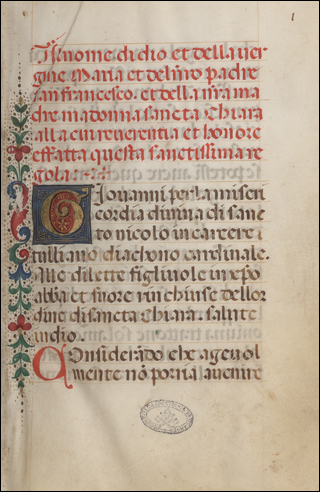 1
In nome di dio et della ver
gine Maria et del nro padre
san francesco. et della nra ma
dre madonna sancta Chiara
alla cui reverentia et honore
effatta questa sanctissima re
gola.
Giovanni per la miseri
cordia divina di sanc
to nicolo in carcere
tulliano diachono cardinale.
Alle dilette figliuole in xpo
abba et suore rinchiuse dellor
dine di sancta Chiara. salute
indio.
Considerãdo che agevol
mente nõ poria avenire